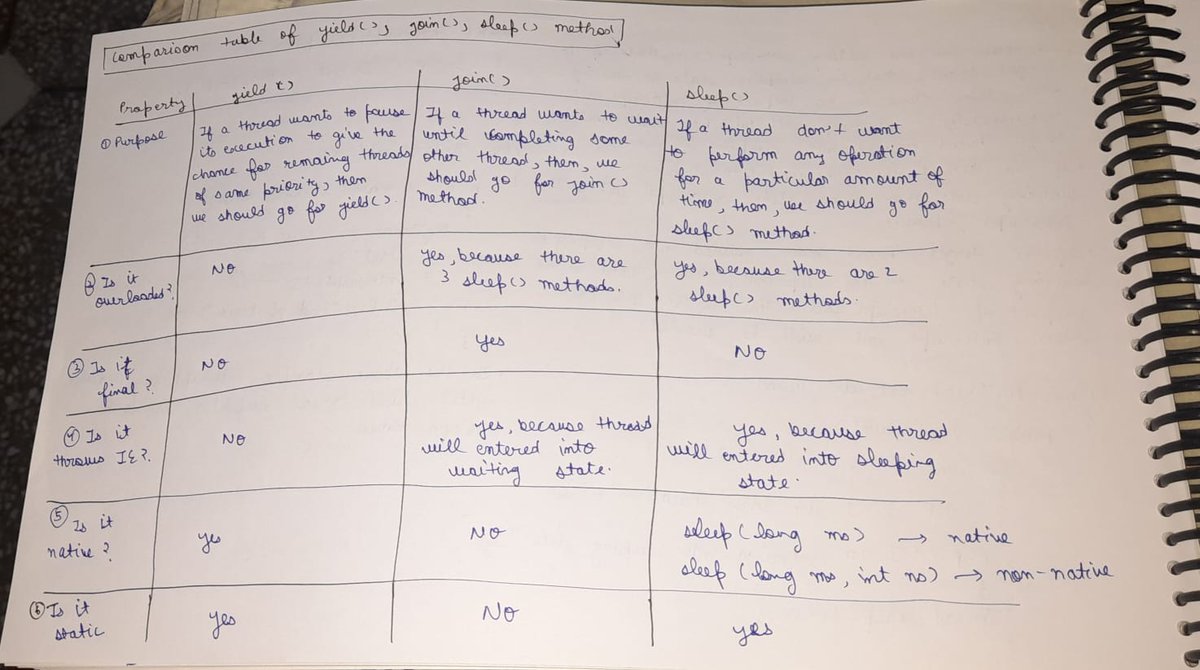 Comparison table of yield(), join(), sleep() method
Property
yield()
join()
sleep()
① Purpose
If a thread wants to pause
its execution to give the
chance for remaing threads
of same priority, then
we should go for yield().
If a thread wants to wait
until completing some
other thread, then, we
should go for join()
method.
If a thread don't want
to perform any operation
for a particular amount of
time, then, we should go for
sleep() method.
② Is it
overloaded?
NO
yes, because there are
3 sleep() methods.
yes, because there are 2
sleep() methods.
③ Is it
final?
NO
yes
NO
④ Is it
throws IE?
NO
yes, because thread
will entered into
waiting state.
yes, because thread
will entered into sleeping
state.
⑤ Is it
native?
yes
NO
sleep (long ms) → native
sleep (long ms, int ns) → non-native
⑥ Is it
static
yes
NO
yes